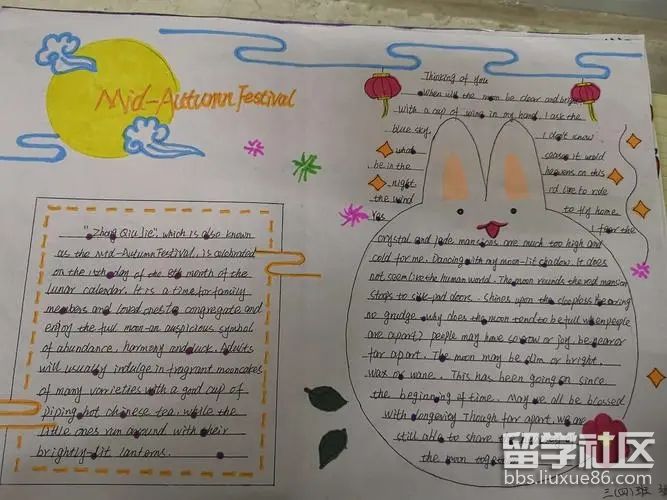 Mid-Autumn Festival
"Zhong Qiu Jie", which is also known
as the Mid-Autumn Festival, is celebrated
on the 15th day of the 8th month of the
lunar calendar. It is a time for family
members and loved ones to congregate and
enjoy the full moon-an auspicious symbol
of abundance, harmony and luck. Adults
will usually indulge in fragrant mooncakes
of many varieties with a good cup of
piping hot chinese tea, while the
little ones run around with their
brightly-lit lanterns.
Thinking of you
When will the moon be clear and bright
with a cup of wine in my hand. I ask the
blue sky. I don't know
what season it would
be in the heavens on this
night I'd like to ride
the wind to fly home
Yes I fear the
crystal and jade mansions are much too high and
cold for me. Dancing with my moon-lit shadow. It does
not seem like the human world. The moon rounds the red mansion
stoops to silk-pad doors. shines upon the sleepless bearing
no grudge why does the moon tend to be full when people
are apart? people may have sorrow or joy, be near or
far apart. The moon may be dim or bright
wax or wane. This has been going on since
the beginning of time. May we all be blessed
with longevity Though far apart. we are
still able to share
the moon together
三(四)班
留学社区
bbs.liuxue86.com